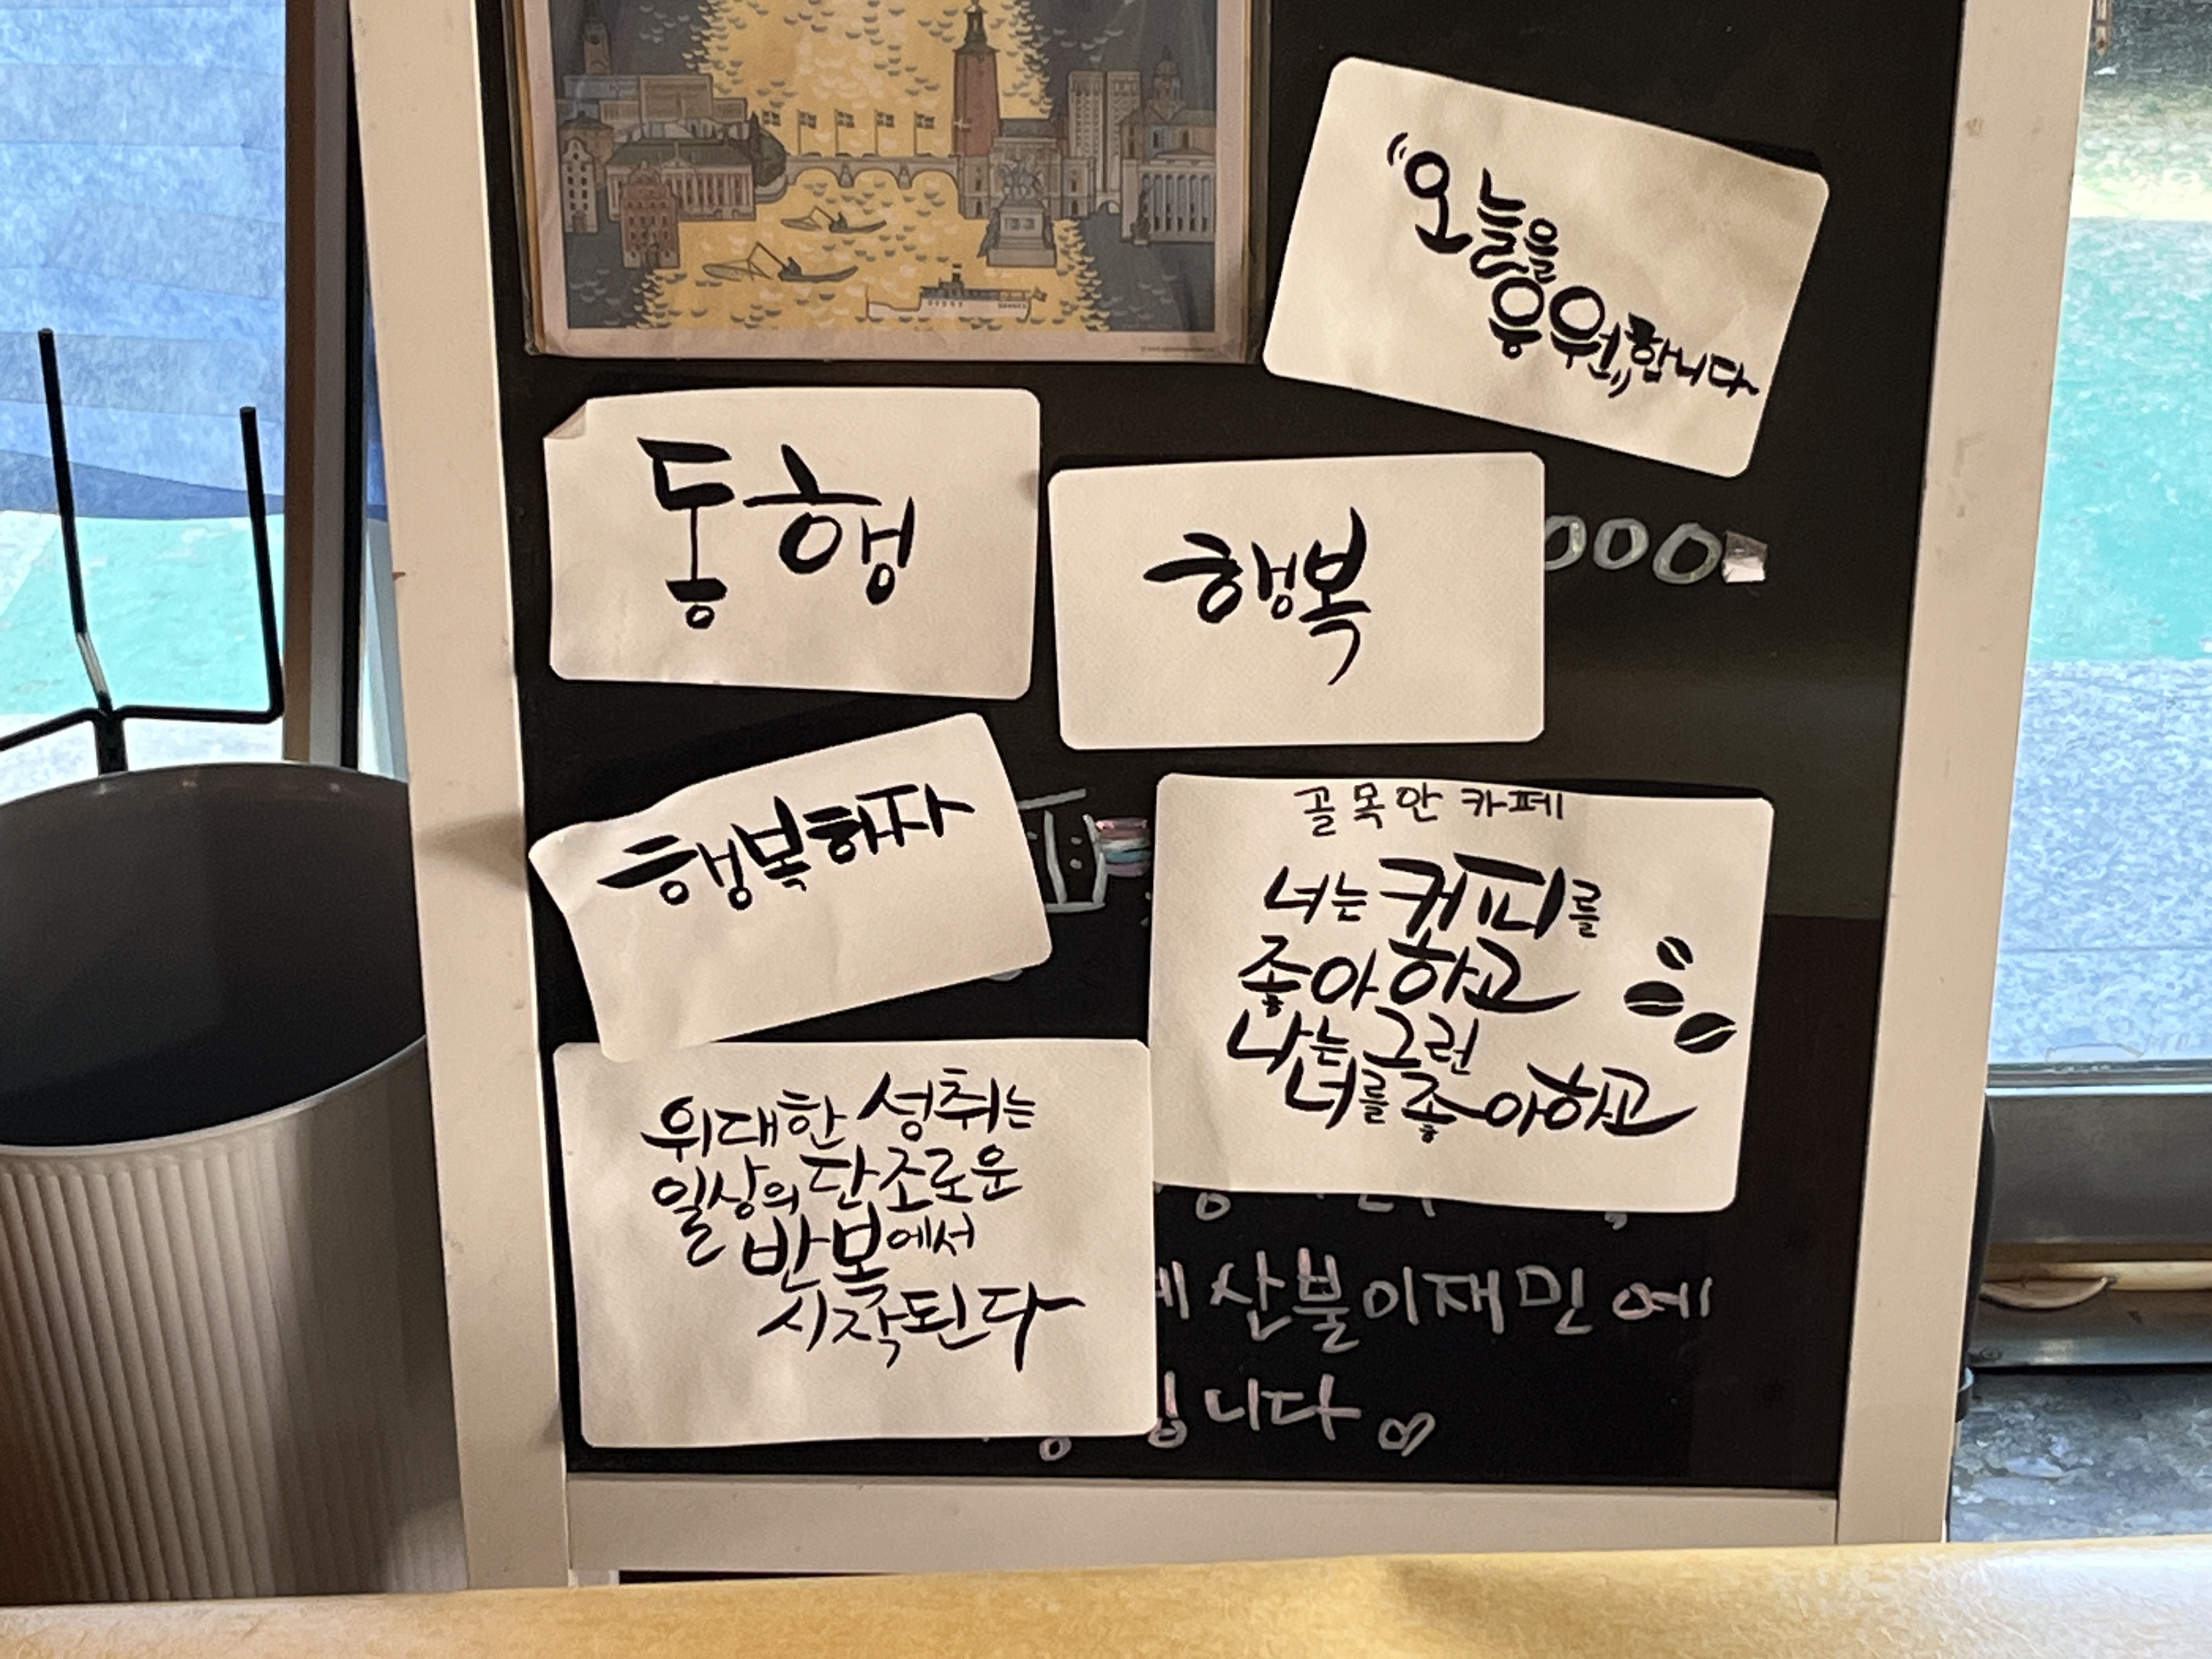 “오늘을
응원”합니다
동행
행복
000
행복하자
골목안 카페
너는 커피를
좋아하고
나는 그런
너를 좋아하고
위대한 성취는
일상의 단조로운
반복에서
시작된다
산불이재민에
입니다♡